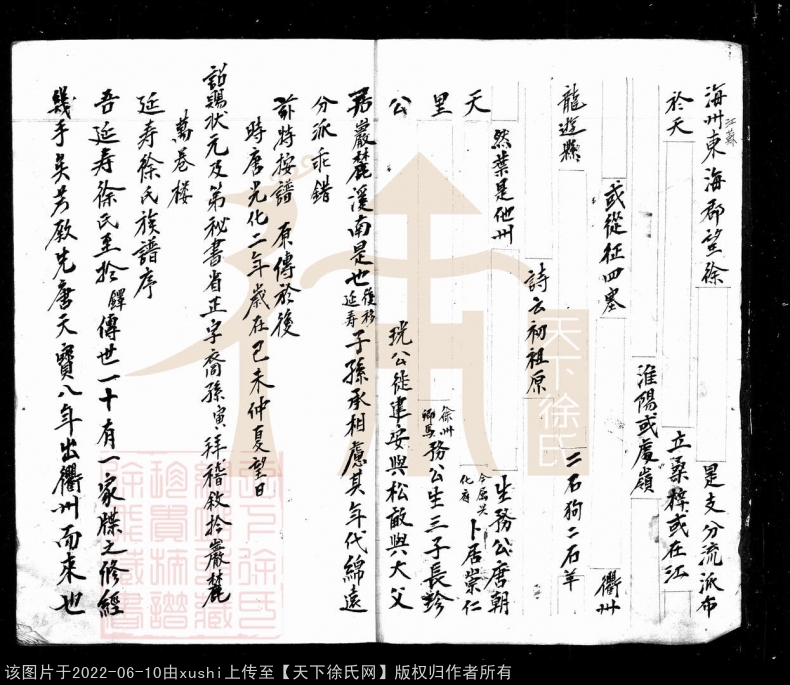 海州東海郡望徐 是支分流派布
江蘇
於天 立桑梓或在江
淮陽或處嶺
或從征四塞 衢州
龍遊縣 二石狗二石羊
詩云初祖原
然葉是他州 生務公唐朝
天 今屬 卜居崇仁
里 徐州 駙馬 務公生三子長珍
公 珖公徙建安與松敵與大父
居巖麓溪南是也後移延寿子孫承相慮其年代綿遠
分派乖錯
茲特按譜 原傳於後
時唐光化二年歲在己未仲夏望日
詔賜状元及第秘書省正字裔孫寅拜稽敘於巖麓
萬卷楼
延寿徐氏族譜序
吾延寿徐氏至於鐸傳世一十有一家牒之修經
幾手矣芳啟先唐天寶八年出衢州而來也
天下徐氏
该图片于2022-06-10由xushi上传至【天下徐氏网】版权归作者所有